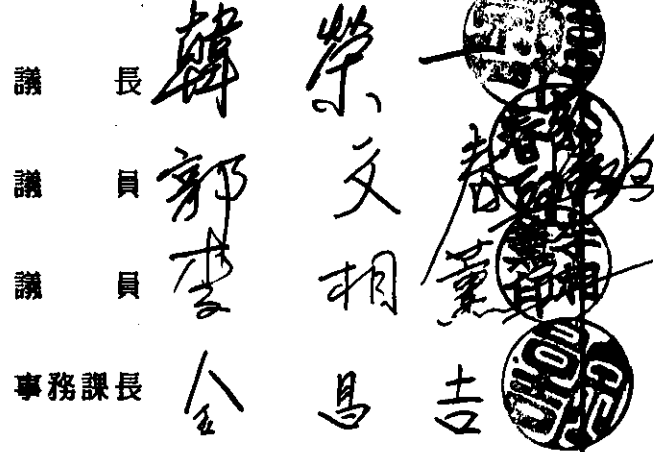 議長 韓榮一
議員 郭文春
議員 李相薰
事務課長 金昌吉